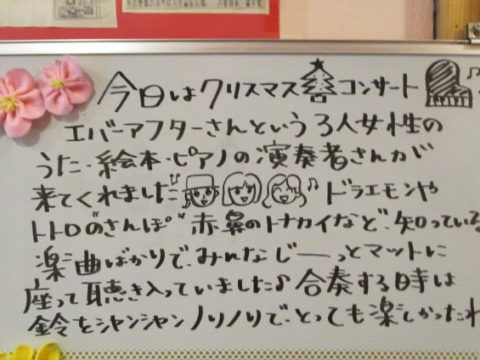 今日はクリスマスコンサート♪
エバーアフターさんという3人女性の
うた・絵本・ピアノの演奏者さんが
来てくれました♪ ♪ドラエモンや
トトロの"さんぽ" 赤鼻のトナカイなど、知っている
楽曲ばかりで、みんなじーーっとマットに
座って聴き入っていました♪ 合奏する時は
鈴をシャンシャンノリノリで、とっても楽しかったね